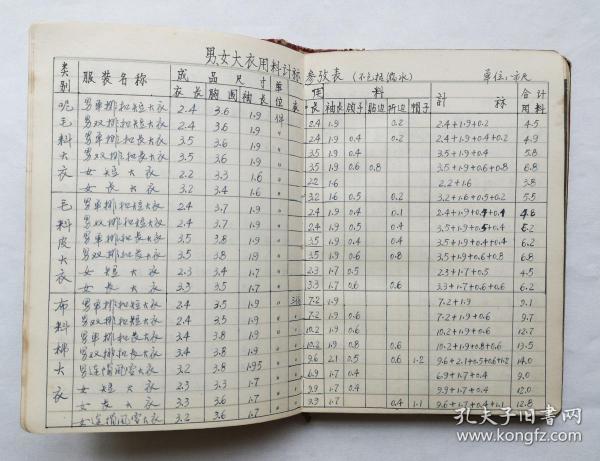 男女大衣用料计称参攷表（不包括缩水） 单位：市尺
类别 服装名称 成品尺寸 单位 用料 计称 合计用料
衣长 胸围 袖长 衣长 袖长 领子 贴边 折边 帽子
呢毛料大衣
男单排扣短大衣 2.4 3.6 1.9 件 2.4 1.9 0.2 2.4+1.9+0.2 4.5
男双排扣短大衣 2.4 3.6 1.9 〃 2.4 1.9 0.4 0.2 2.4+1.9+0.4+0.2 4.9
男单排扣长大衣 3.5 3.6 1.9 〃 3.5 1.9 0.4 3.5+1.9+0.4 5.8
男双排扣长大衣 3.5 3.6 1.9 〃 3.5 1.9 0.6 0.8 3.5+1.9+0.6+0.8 6.8
女短大衣 2.2 3.3 1.6 〃 2.2 1.6 2.2+1.6 3.8
女长大衣 3.2 3.4 1.6 〃 3.2 1.6 0.5 0.2 3.2+1.6+0.5+0.2 5.5
毛料皮大衣
男单排扣短大衣 2.4 3.7 1.9 〃 2.4 1.9 0.4 0.1 4.8
男双排扣短大衣 2.4 3.7 1.9 〃 2.4 1.9 0.5 0.4
男单排扣长大衣 3.5 3.8 1.9 〃 3.5 1.9 0.4 0.4 3.5+1.9+0.4+0.4 6.2
男双排扣长大衣 3.5 3.8 1.9 〃 3.5 1.9 0.6 0.8 3.5+1.9+0.6+0.8 6.8
女短大衣 2.3 3.4 1.7 〃 2.3 1.7 0.5 2.3+1.7+0.5 4.5
女长大衣 3.3 3.5 1.7 〃 3.3 1.7 0.6 0.6 3.3+1.7+0.6+0.6 6.2
布料棉大衣
男单排扣短大衣 2.4 3.5 1.9 7.2 1.9 7.2+1.9 9.1
男双排扣短大衣 2.4 3.5 1.9 〃 7.2 1.9 0.6 7.2+1.9+0.6 9.7
男单排扣长大衣 3.4 3.8 1.9 〃 10.2 1.9 0.6 10.2+1.9+0.6 12.7
男双排扣长大衣 3.4 3.8 1.9 〃 10.2 1.9 0.8 0.6 10.2+1.9+0.8+0.6 13.5
男连帽风雪大衣 3.2 3.8 1.95 〃 9.6 2.1 0.5 0.6 1.2 9.6+2.1+0.5+0.6+1.2 14.0
女短大衣 2.3 3.3 1.7 〃 6.9 1.7 0.4 6.9+1.7+0.4 9.0
女长大衣 3.3 3.6 1.7 〃 9.9 1.7 0.4 9.9+1.7+0.4 12.0
女连帽风雪大衣 3.2 3.6 1.7 〃 1.7 0.4 1.1 9.6+1.7+0.4+1.1 12.8
孔夫子旧书网
www.kongfz.com